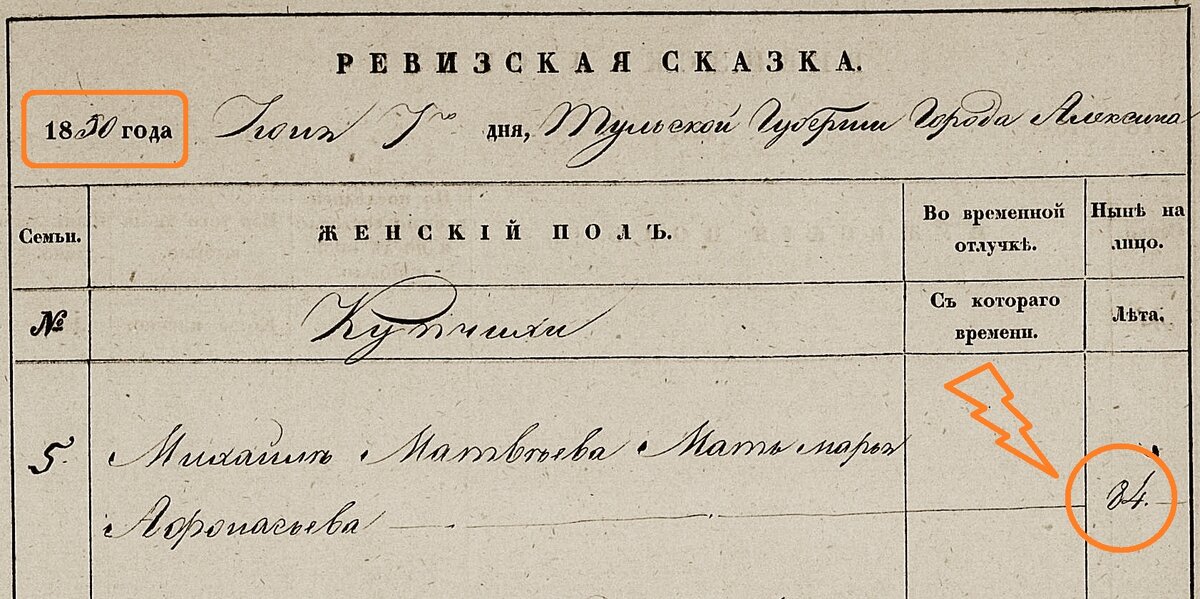 РЕВИЗСКАЯ СКАЗКА.
1850 года Іюня 7го дня, Тульской Губерніи Города Алексина
Семьи. ЖЕНСКІЙ ПОЛЪ. Во временной отлучкѣ. Нынѣ на лицо.
№ Купчихи Съ котораго времени. Лѣта.
5. Михайлы Матвѣева Мать Марья
Афонасьева 84.